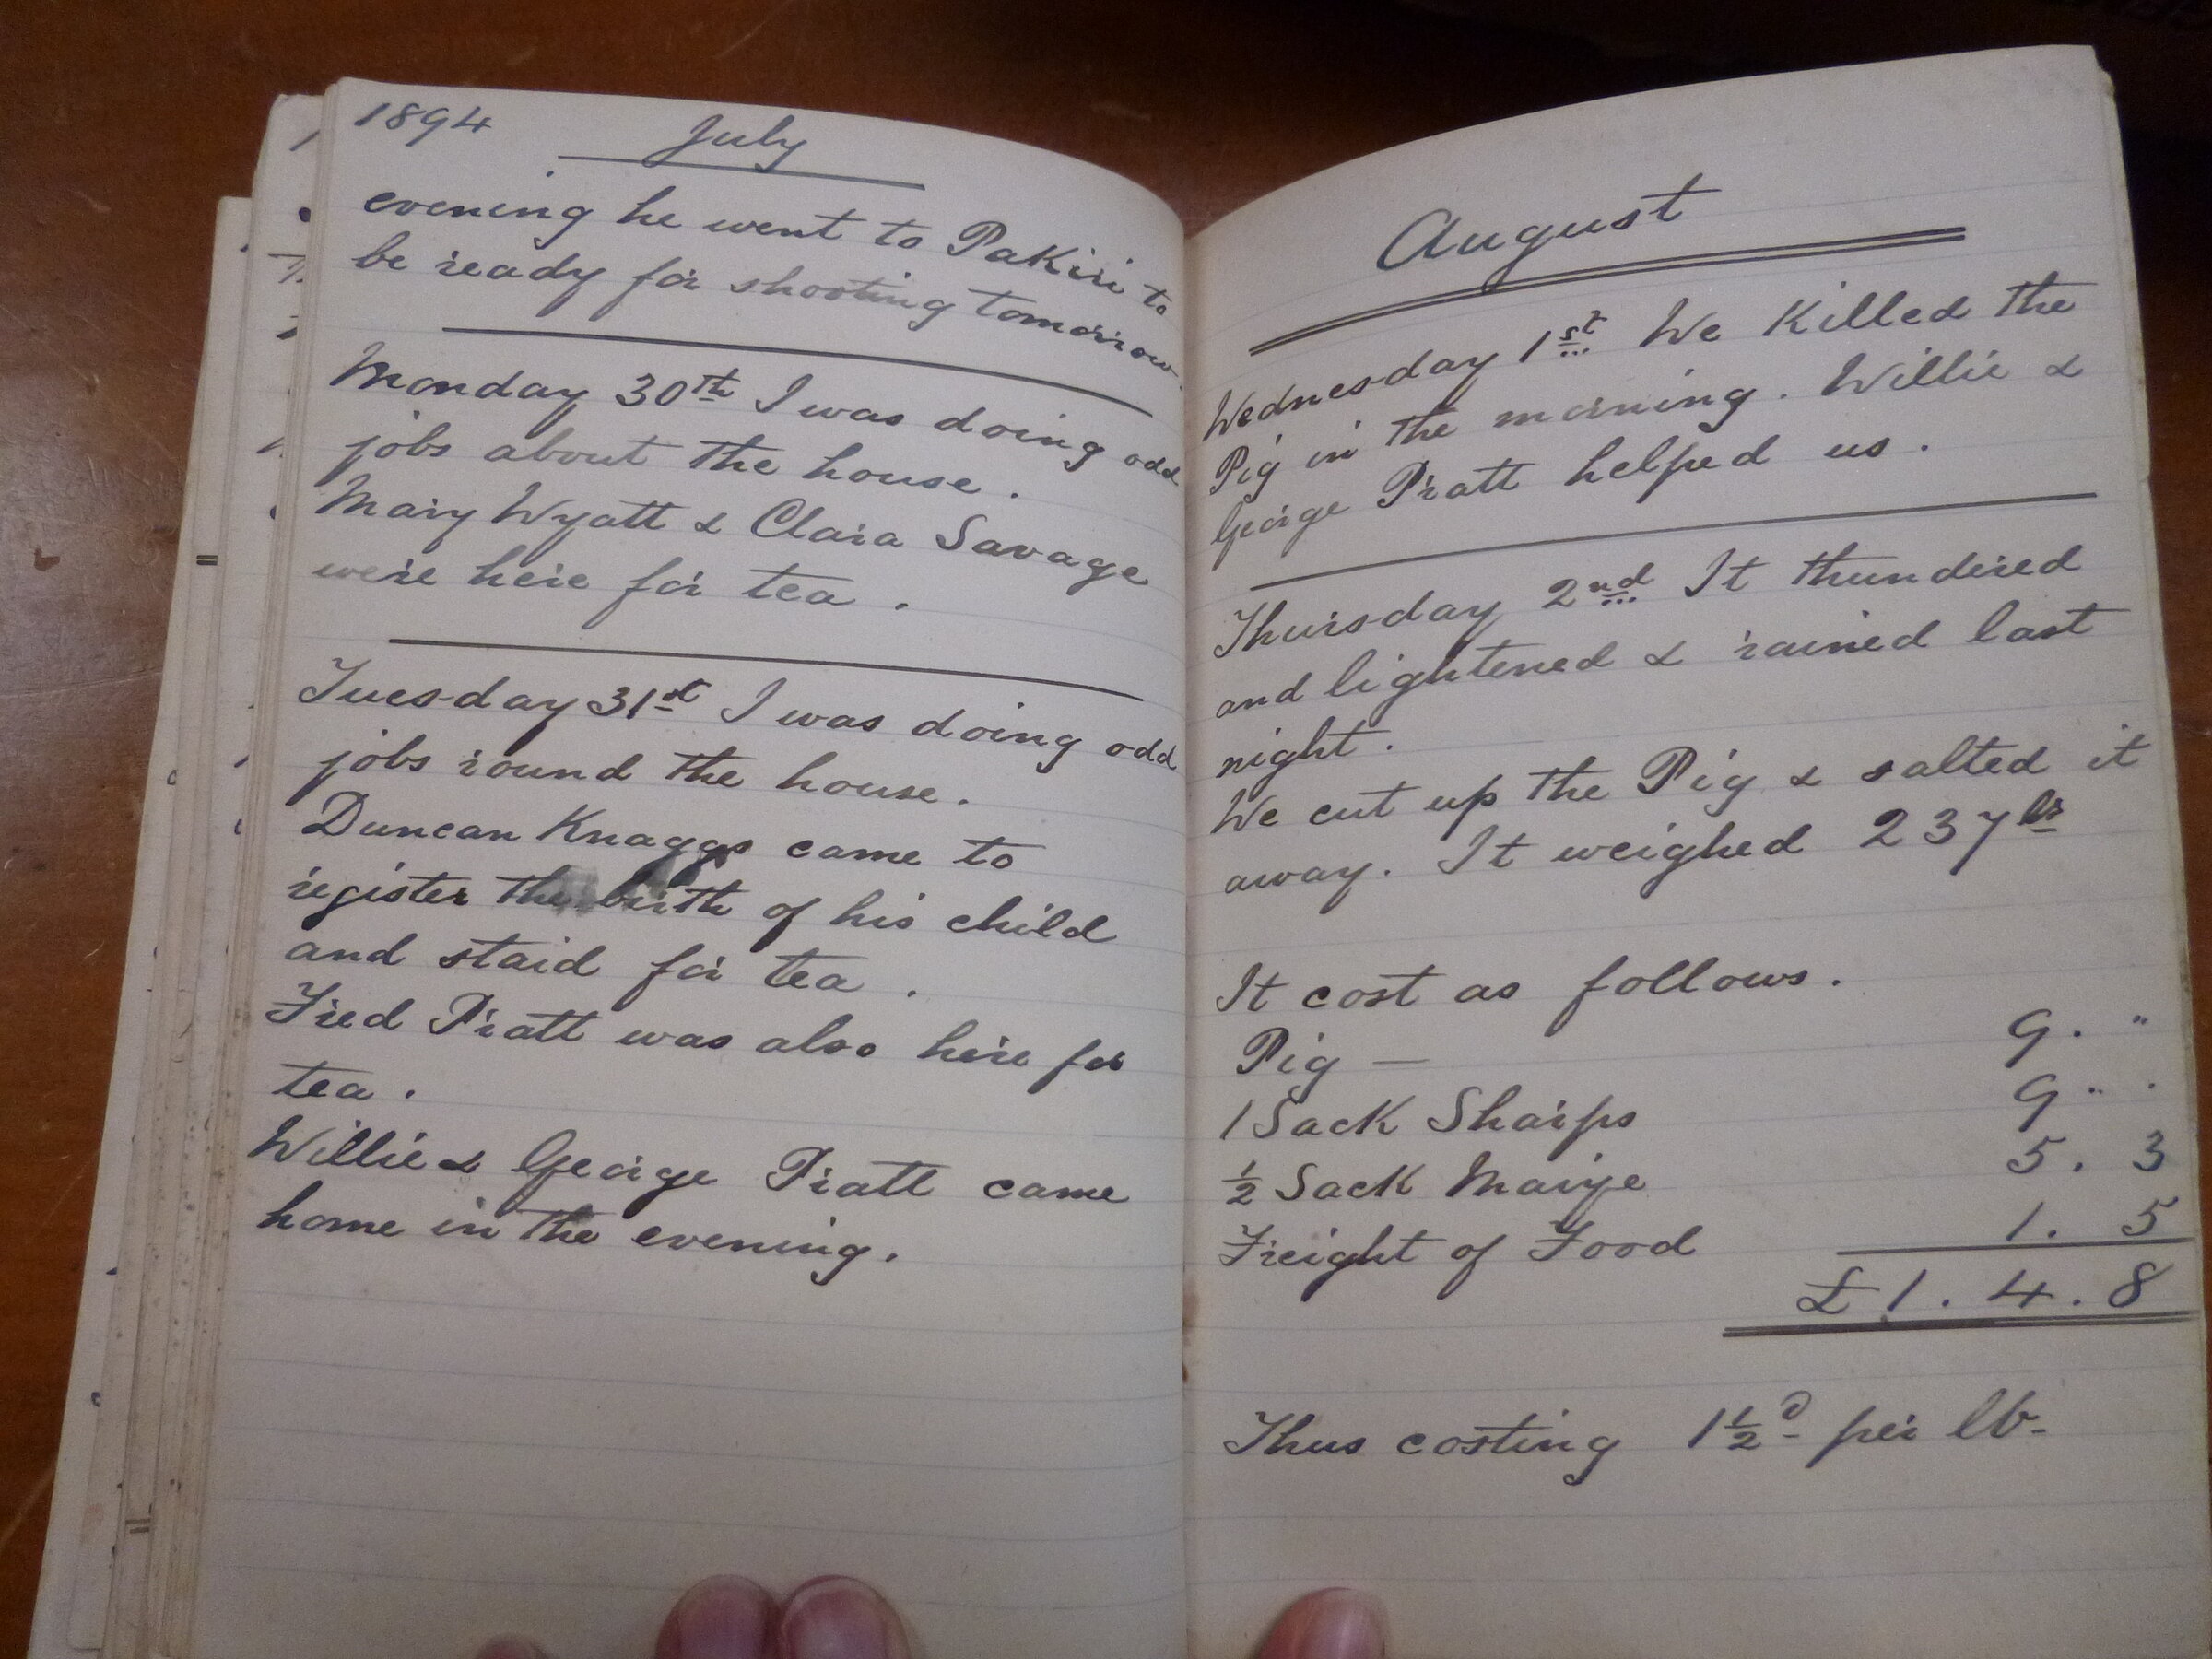 1894 July
evening he went to Pakiri to
be ready for shooting tomorrow.
Monday 30th I was doing odd
jobs about the house.
Mary Wyatt & Clara Savage
were here for tea.
Tuesday 31st I was doing odd
jobs round the house.
Duncan Knaggs came to
register the birth of his child
and staid for tea.
Fred Pratt was also here for
tea.
Willie & George Pratt came
home in the evening.
August
Wednesday 1st We Killed the
Pig in the morning. Willie &
George Pratt helped us.
Thursday 2nd It thundered
and lightened & rained last
night.
We cut up the Pig & salted it
away. It weighed 237 lbs
It cost as follows.
Pig — 9. "
1 Sack Sharps 9 " .
½ Sack Maize 5. 3
Freight of Food 1. 5
£1. 4. 8
Thus costing 1½d per lb-